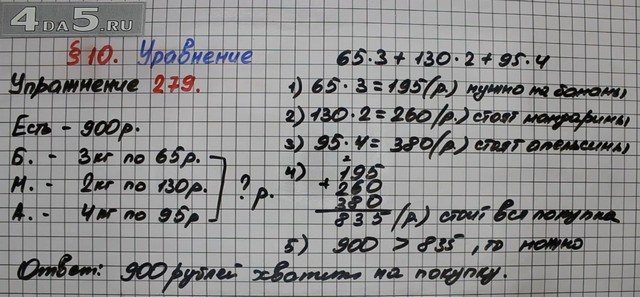 4DA5.RU
§ 10. Уравнение
Упражнение 279.
Есть - 900р.
Б. - 3кг по 65р.
М. - 2кг по 130р.
А. - 4кг по 95р
? р.
65·3 + 130·2 + 95·4
1) 65·3 = 195(р.) нужно на бананы
2) 130·2 = 260(р.) стоят мандарины
3) 95·4 = 380(р.) стоят апельсины
4) 2
195
+ 260
380
835 (р.) стоит вся покупка
5) 900 > 835, то можно
Ответ: 900 рублей хватит на покупку.